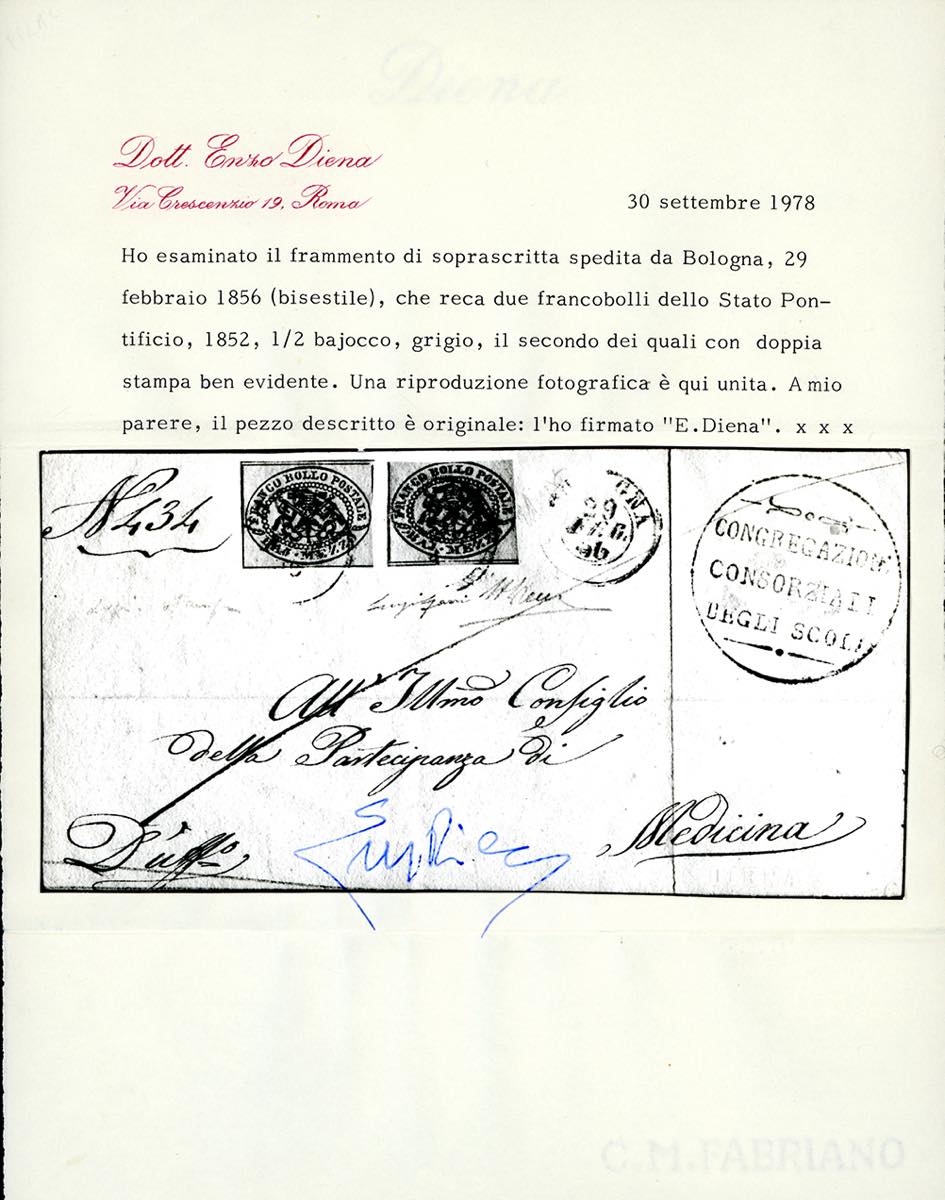 Diena
Dott. Enzo Diena
Via Crescenzio 19, Roma
30 settembre 1978
Ho esaminato il frammento di soprascritta spedita da Bologna, 29
febbraio 1856 (bisestile), che reca due francobolli dello Stato Pon-
tificio, 1852, 1/2 bajocco, grigio, il secondo dei quali con doppia
stampa ben evidente. Una riproduzione fotografica è qui unita. A mio
parere, il pezzo descritto è originale: l'ho firmato "E.Diena". x x x
N 434
FRANCO BOLLO POSTALE
MEZZ
FRANCO BOLLO POSTALE
MEZZ
GNA
29
FEB.
56
CONGREGAZIONI
CONSORZIALI
DEGLI SCOLI
All' Illmo Consiglio
della Partecipanza di
Medicina
D'uffo
DIENA
C.M.FABRIANO